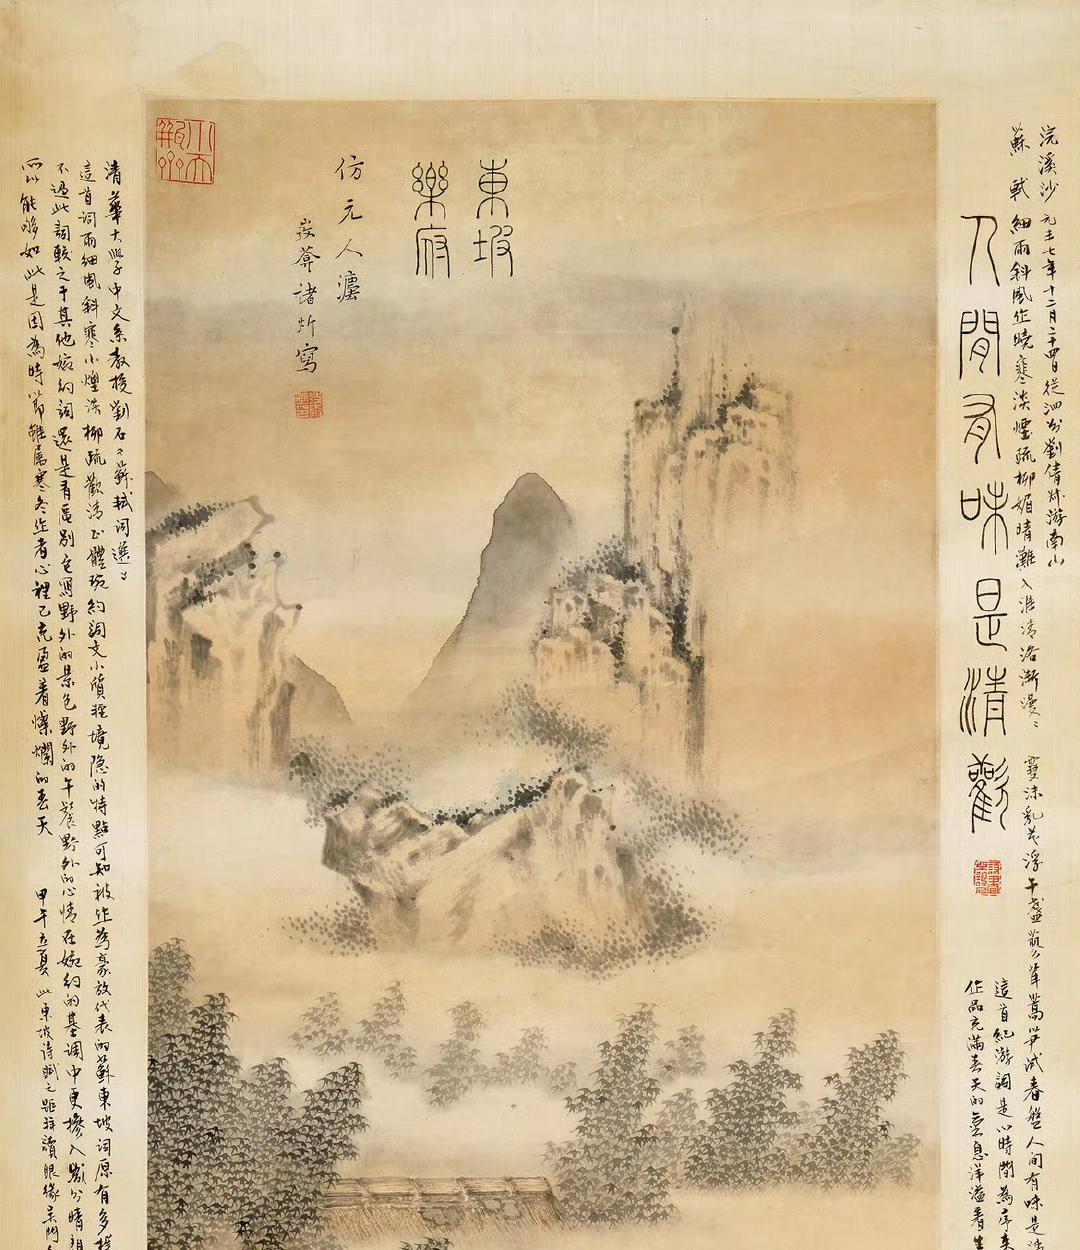 東坡
樂府
仿元人灋
諸炘寫
人間有味是清歡
浣溪沙 元丰七年十二月二十四日從泗州劉倩叔游南山
蘇軾 細雨斜風作曉寒淡煙疏柳媚晴灘入淮清洛漸漫漫 雪沫乳花浮午盞蓼茸蒿笋試春盤人间有味是清
這首紀游詞是以時間為序來
作品充滿春天的氣息洋溢着生
清華大學中文系教授劉石《蘇軾詞選》
這首词雨細風斜寒小煙淡柳疏歡清正體現婉約詞文小質輕境隐的特點可知被作為豪放代表的蘇東坡詞原有多樣
不過此詞較之于其他婉約詞還是有區别它寫野外的景色野外的午餐野外的心情在婉約的基調中更摻入
所以能够如此是因為時節雖屬寒冬作者心裡已充盈着燦爛的春天 甲午立夏